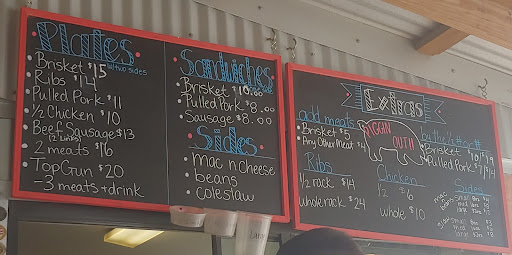 Plates
w/two sides
Brisket $15
Ribs $14
Pulled Pork $11
1/2 Chicken $10
Beef Sausage $13
(2 Links)
2 meats $16
TopGun $20
-3 meats + drink
Sandwiches
Brisket $10.00
Pulled Pork $8.00
Sausage $8.00
Sides
mac n cheese
beans
coleslaw
Extras
add meats
Brisket $5
Any Other Meat $4
Ribs
1/2 rack $14
whole rack $24
PIGGIN OUT!!
Chicken
1/2 $6
whole $10
by the 1/2# or #
Brisket
Pulled Pork
Sides